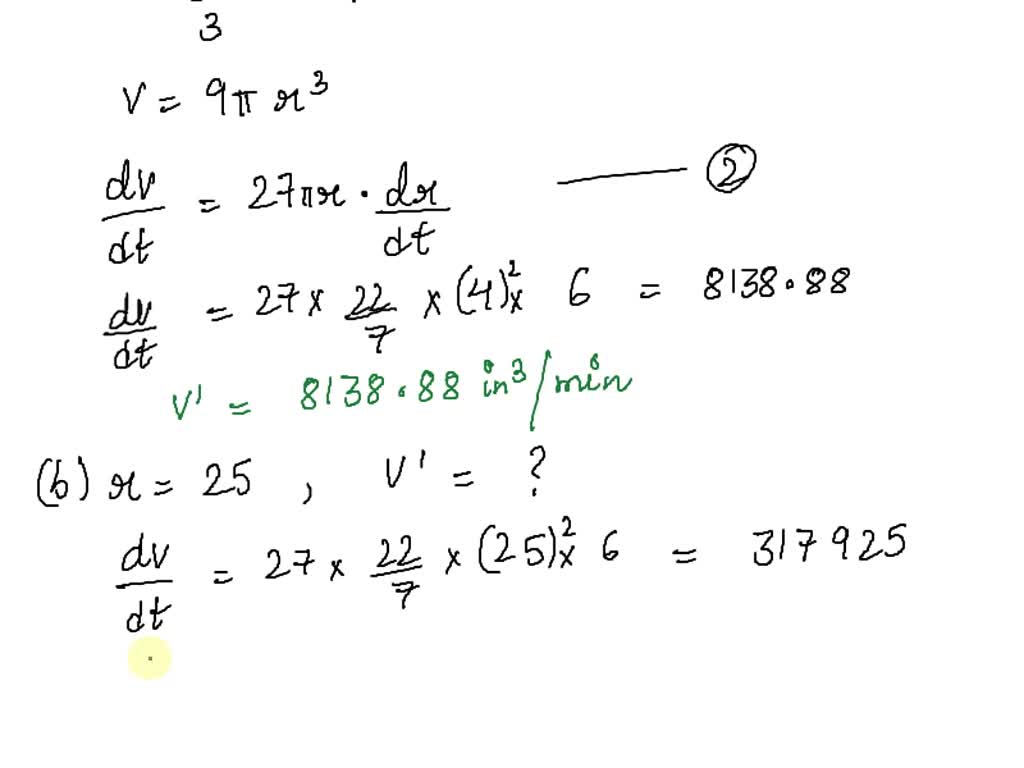 3
V = 9π r³
dv/dt = 27πr · dr/dt ——— ②
dv/dt = 27 × 22/7 × (4)² × 6 = 8138.88
V' = 8138.88 in³/min
(b) r = 25 , V' = ?
dv/dt = 27 × 22/7 × (25)² × 6 = 317925